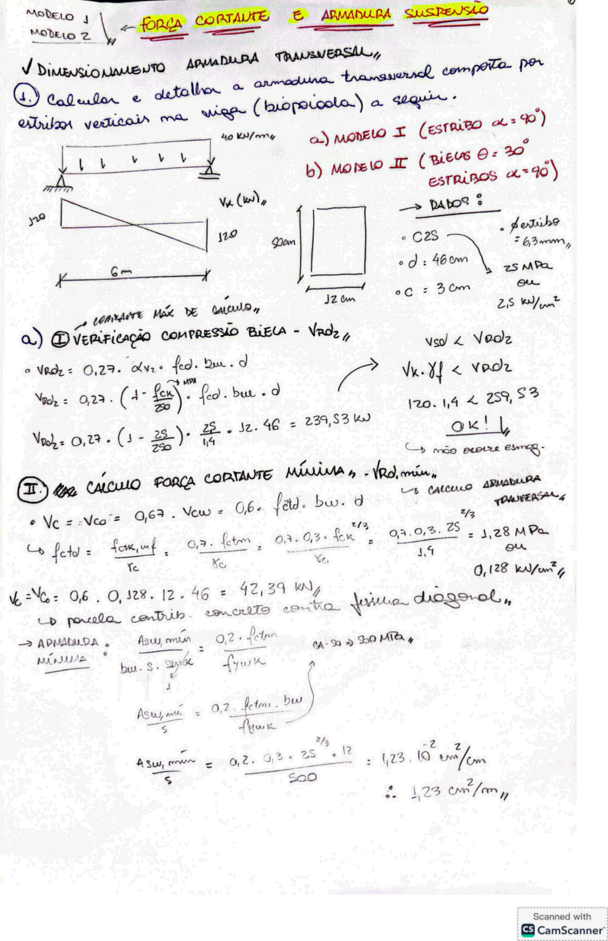 MODELO 1
MODELO 2
FORÇA CORTANTE E ARMADURA SUSPENSÃO
✓ DIMENSIONAMENTO ARMADURA TRANSVERSAL
1. Calcular e detalhar a armadura transversal composta por
estribos verticais na viga (biapoiada) a seguir.
40 KN/m
a) MODELO I (ESTRIBO α = 90°)
b) MODELO II (BIELAS θ = 30°
ESTRIBOS α = 90°)
Vk (KN)
120
120
6m
50cm
12 cm
→ DADOS:
• C25
• d = 46cm
• C = 3 cm
• ϕ estribo
= 6,3mm
25 MPa
ou
2,5 KN/cm²
CORTANTE MÁX DE CÁLCULO
a) I VERIFICAÇÃO COMPRESSÃO BIELA - VRd2
• VRd2 = 0,27 . αv2 . fcd . bw . d
VRd2 = 0,27 . (1 - fck/250) . fcd . bw . d
MPa
VRd2 = 0,27 . (1 - 25/250) . 25/1,4 . 12 . 46 = 239,53 KN
Vsd < VRd2
Vk . γf < VRd2
120 . 1,4 < 259,53
OK!
↳ não ocorre esmag.
II. CÁLCULO FORÇA CORTANTE MÍNIMA - VRd,min
↳ CALCULO ARMADURA
TRANVERSAL
• Vc = Vco = 0,67 . Vcw = 0,6 . fctd . bw . d
↳ fctd = fctk,inf/γc = 0,7 . fctm/γc = 0,7 . 0,3 . fck^2/3/γc = 0,7 . 0,3 . 25^2/3/1,4 = 1,28 MPa
ou
0,128 KN/cm²
Vc = Vco = 0,6 . 0,128 . 12 . 46 = 42,39 KN
↳ parcela contrib. concreto contra fissura diagonal
→ ARMADURA
MÍNIMA:
Asw,min/bw . s . senα = 0,2 . fctm/fywk
1
CA-50 → 500 MPa
Asw,mín/s = 0,2 . fctm . bw/fywk
Asw,min/s = 0,2 . 0,3 . 25^2/3 . 12/500 = 1,23 . 10^-2 cm²/cm
∴ 1,23 cm²/m
Scanned with
CS CamScanner